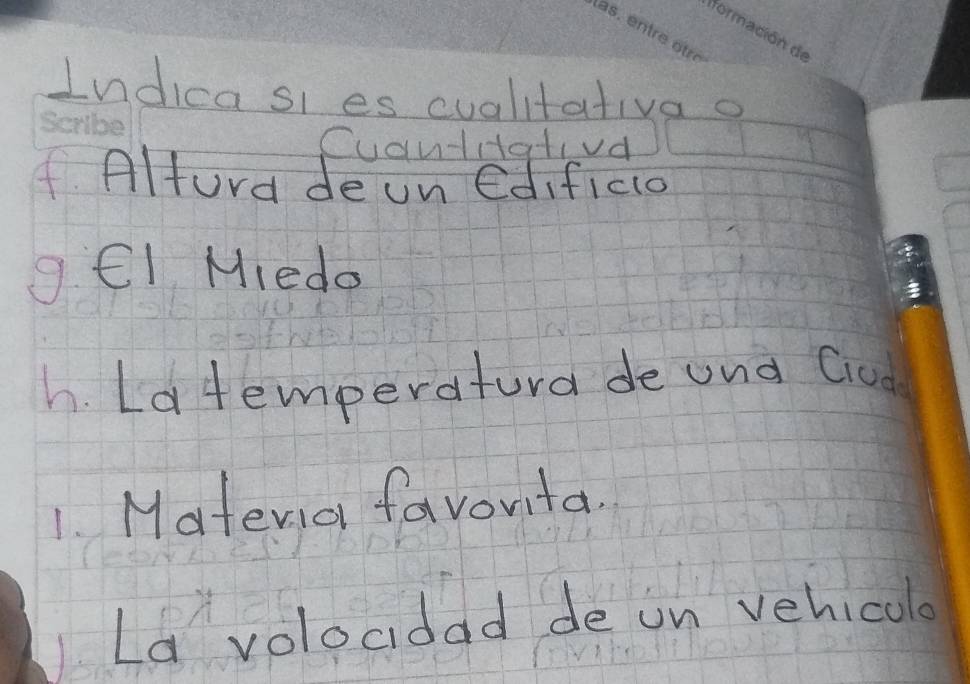 las, entre otr
formación de
Indica si es cualitativa o
Scribe
Cuantitativa
f. Altura de un Edificio
g. El Miedo
h. La temperatura de una Ciud
i. Materia favorita.
j. La volocidad de un vehiculo